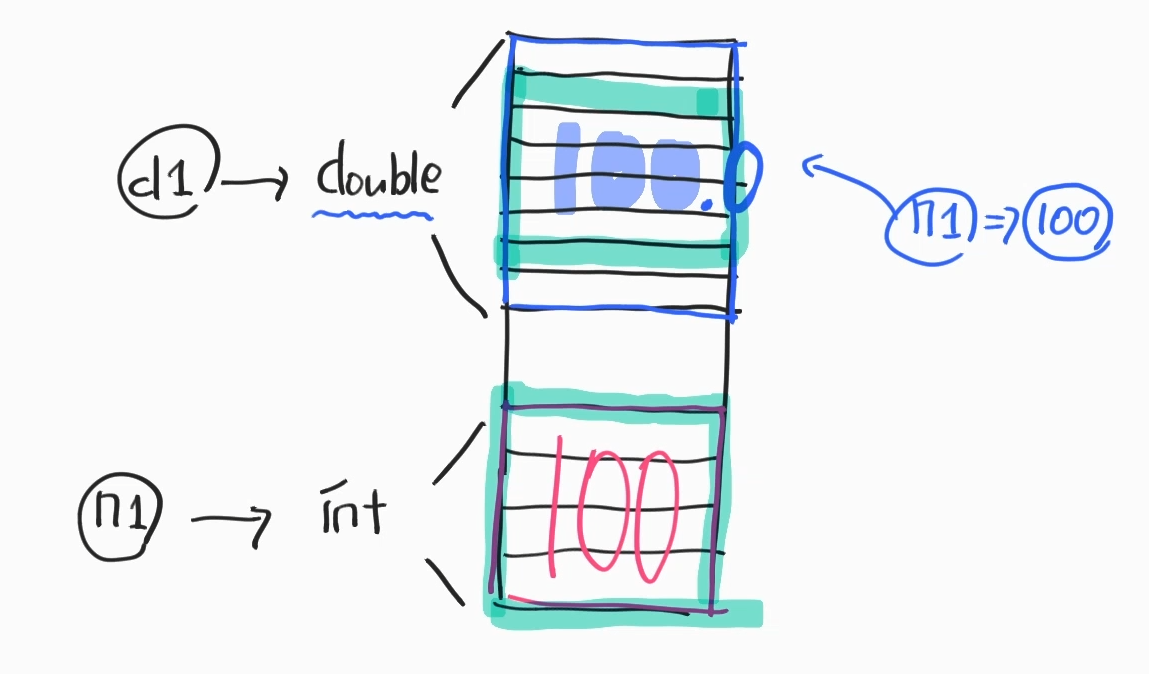 d1 → double
100.0
n1 ⇒ 100
n1 → int
100